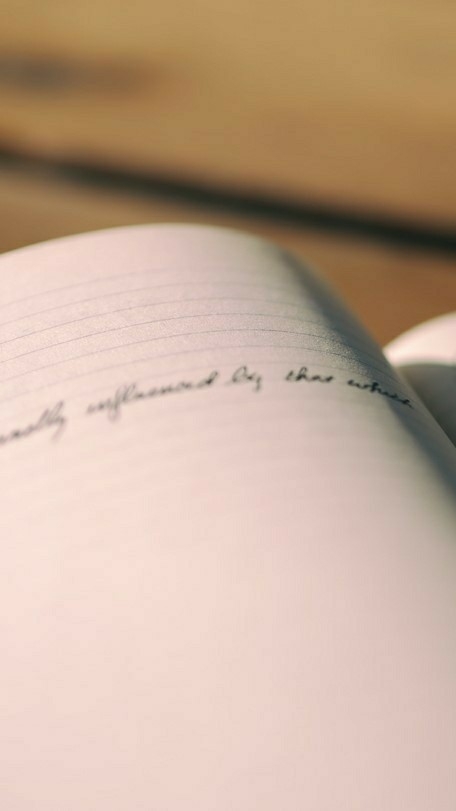 influenced by that which